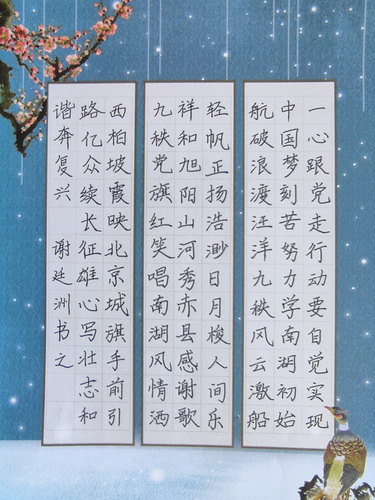 一心跟党走行动要自觉实现
中国梦刻苦努力学南湖初始
航破浪渡汪洋九秩风云激船
轻帆正扬浩渺日月梭人间乐
祥和旭阳山河秀赤县感谢歌
九秩党旗红笑唱南湖风情洒
西柏坡霞映北京城旗手前引
路亿众续长征雄心写壮志和
谐奔复兴 谢廷洲书之